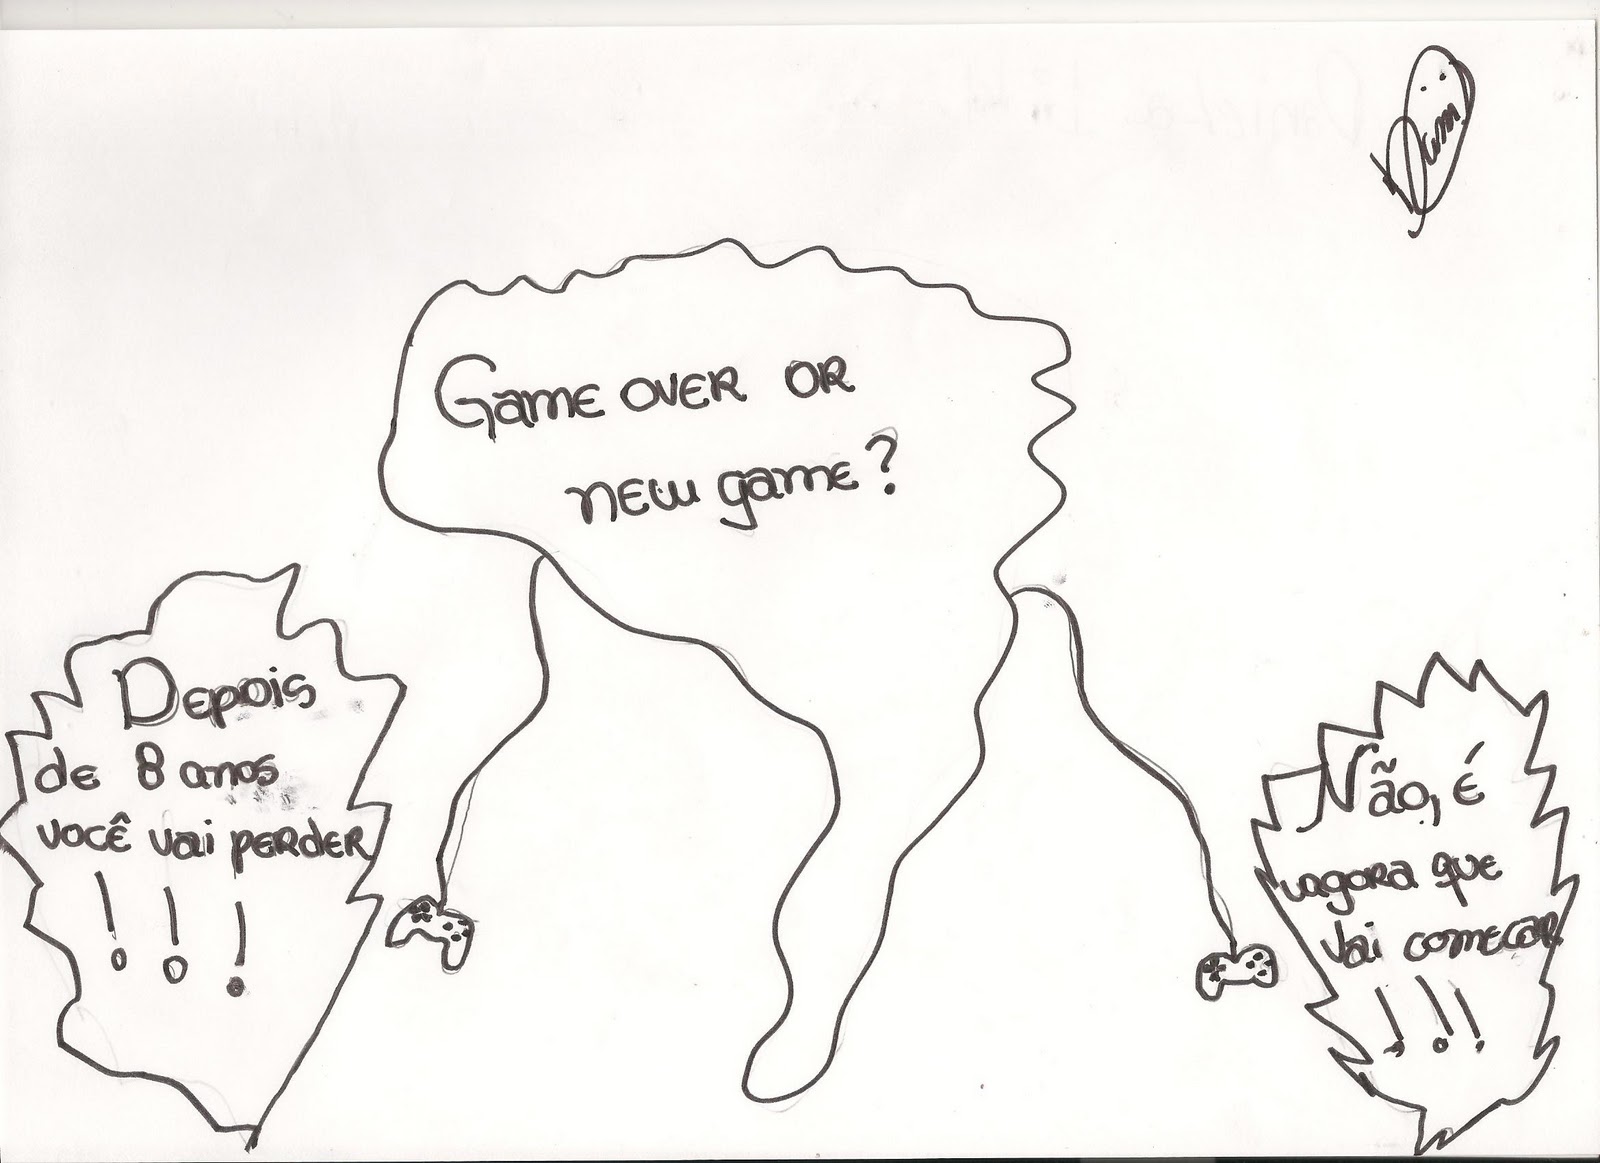 Game over or
new game?
Depois
de 8 anos
você vai perder
! ! !
Não, é
agora que
vai começar
! ! !